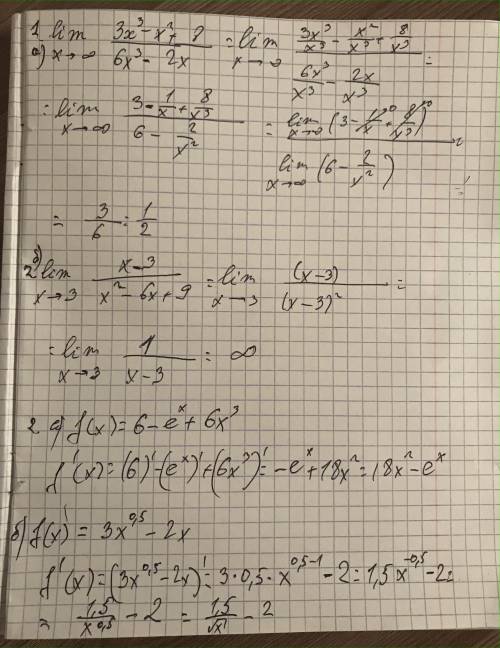 1. lim x→∞ (3x³ - x² + 8)/(6x³ - 2x) = lim x→∞ (3x³/x³ - x²/x³ + 8/x³)/(6x³/x³ - 2x/x³) =
а)
= lim x→∞ (3 - 1/x + 8/x³)/(6 - 2/x²) = lim x→∞ (3 - 1/x + 8/x³)/lim x→∞ (6 - 2/x²) =
= 3/6 = 1/2
б)
2 lim x→3 (x-3)/(x² - 6x + 9) = lim x→3 (x-3)/(x-3)² =
= lim x→3 1/(x-3) = ∞
2 а) f(x) = 6 - eˣ + 6x³
f'(x) = (6)' - (eˣ)' + (6x³)' = -eˣ + 18x² = 18x² - eˣ
б) f(x) = 3x^0,5 - 2x
f'(x) = (3x^0,5 - 2x)' = 3·0,5·x^0,5-1 - 2 = 1,5x^-0,5 - 2 =
= 1,5/x^0,5 - 2 = 1,5/√x - 2